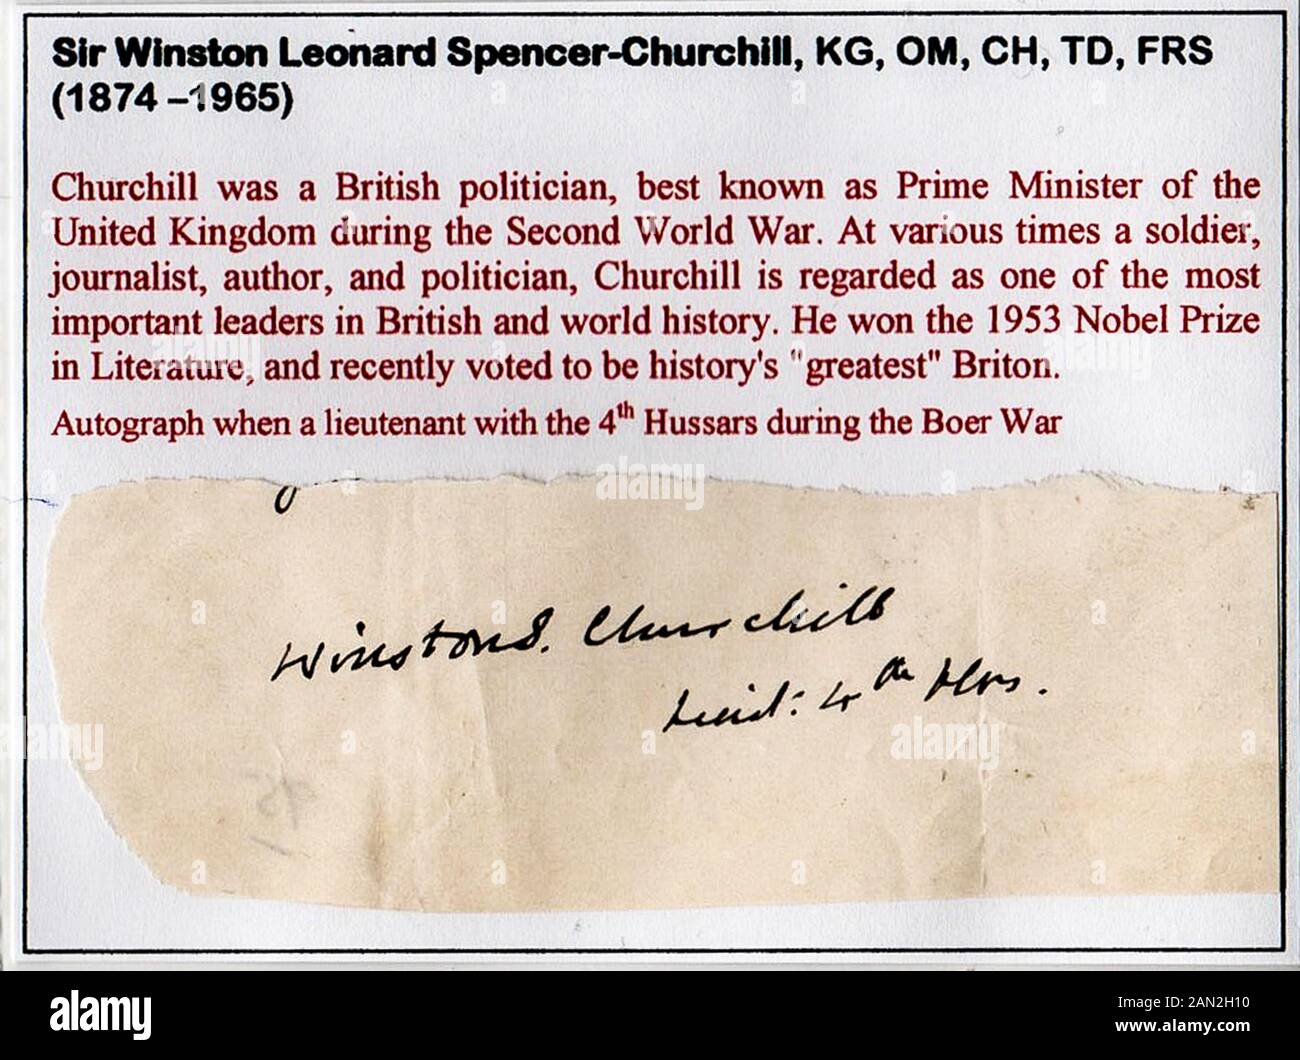 Sir Winston Leonard Spencer-Churchill, KG, OM, CH, TD, FRS
(1874 –1965)
Churchill was a British politician, best known as Prime Minister of the
United Kingdom during the Second World War. At various times a soldier,
journalist, author, and politician, Churchill is regarded as one of the most
important leaders in British and world history. He won the 1953 Nobel Prize
in Literature, and recently voted to be history's "greatest" Briton.
Autograph when a lieutenant with the 4th Hussars during the Boer War
Winston S. Churchill
Lieut: 4th Hrs.
95
alamy
Image ID: 2AN2H10
www.alamy.com